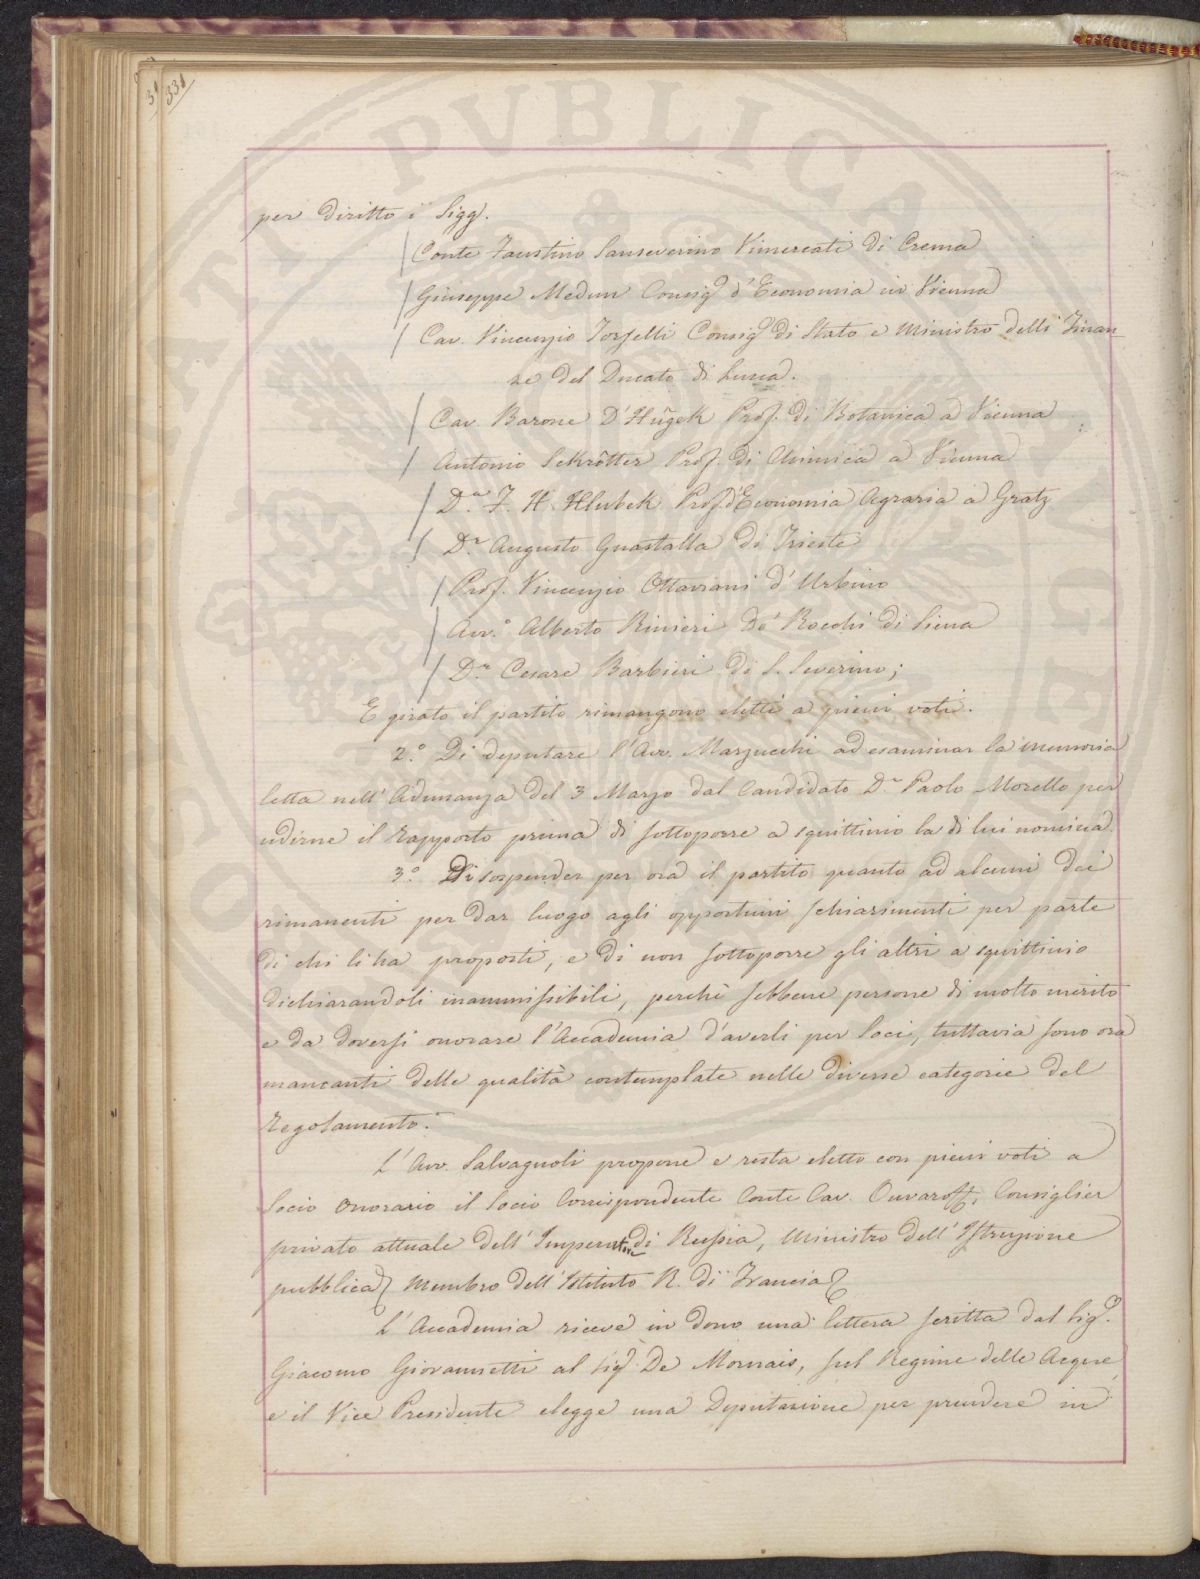 331
per diritto i Sigg.
Conte Faustino Sanseverino Vimercati di Crema
Giuseppe Medun Consig.e d'Economia in Vienna
Cav. Vincenzio Torselli Consig.e di Stato e Ministro delle Finan-
ze del Ducato di Lucca.
Cav. Barone D'Hügek Prof. di Botanica a Vienna
Antonio Sekrötter Prof. di Chimica a Vienna
D.r F. H. Hlubek Prof. d'Economia Agraria a Gratz
D.r Augusto Guastalla di Trieste
Prof. Vincenzio Ottaviani d'Urbino
Avv.o Alberto Rinieri De' Rocchi di Siena
D.r Cesare Barbieri di S. Severino;
E girato il partito rimangono eletti a pieni voti.
2.o Di deputare l'Avv. Marzucchi ad esaminar la memoria
letta nell'Adunanza del 3 Marzo dal Candidato D.r Paolo Morello per
udirne il Rapporto prima di sottoporre a squittinio la di lui nomina.
3.o Di sospender per ora il partito quanto ad alcuni dei
rimanenti per dar luogo agli opportuni schiarimenti per parte
di chi li ha proposti, e di non sottoporre gli altri a squittinio
dichiarandoli inammissibili, perchè sebbene persone di molto merito
e da doversi onorare l'Accademia d'averli per Soci, tuttavia sono ora
mancanti delle qualità contemplate nelle diverse categorie del
Regolamento.
L'Avv. Salvagnoli propone e resta eletto con pieni voti a
Socio Onorario il Socio Corrispondente Conte Cav. Ouvaroff, Consiglier
privato attuale dell'Imperatore di Russia, Ministro dell'Istruzione
pubblica, Membro dell'Istituto R. di Francia
L'Accademia riceve in dono una lettera scritta dal Sig.e
Giacomo Giovannetti al Sig.e De Mornais, sul Regime delle Acque,
e il Vice Presidente elegge una Deputazione per prendere in
PUBLICA